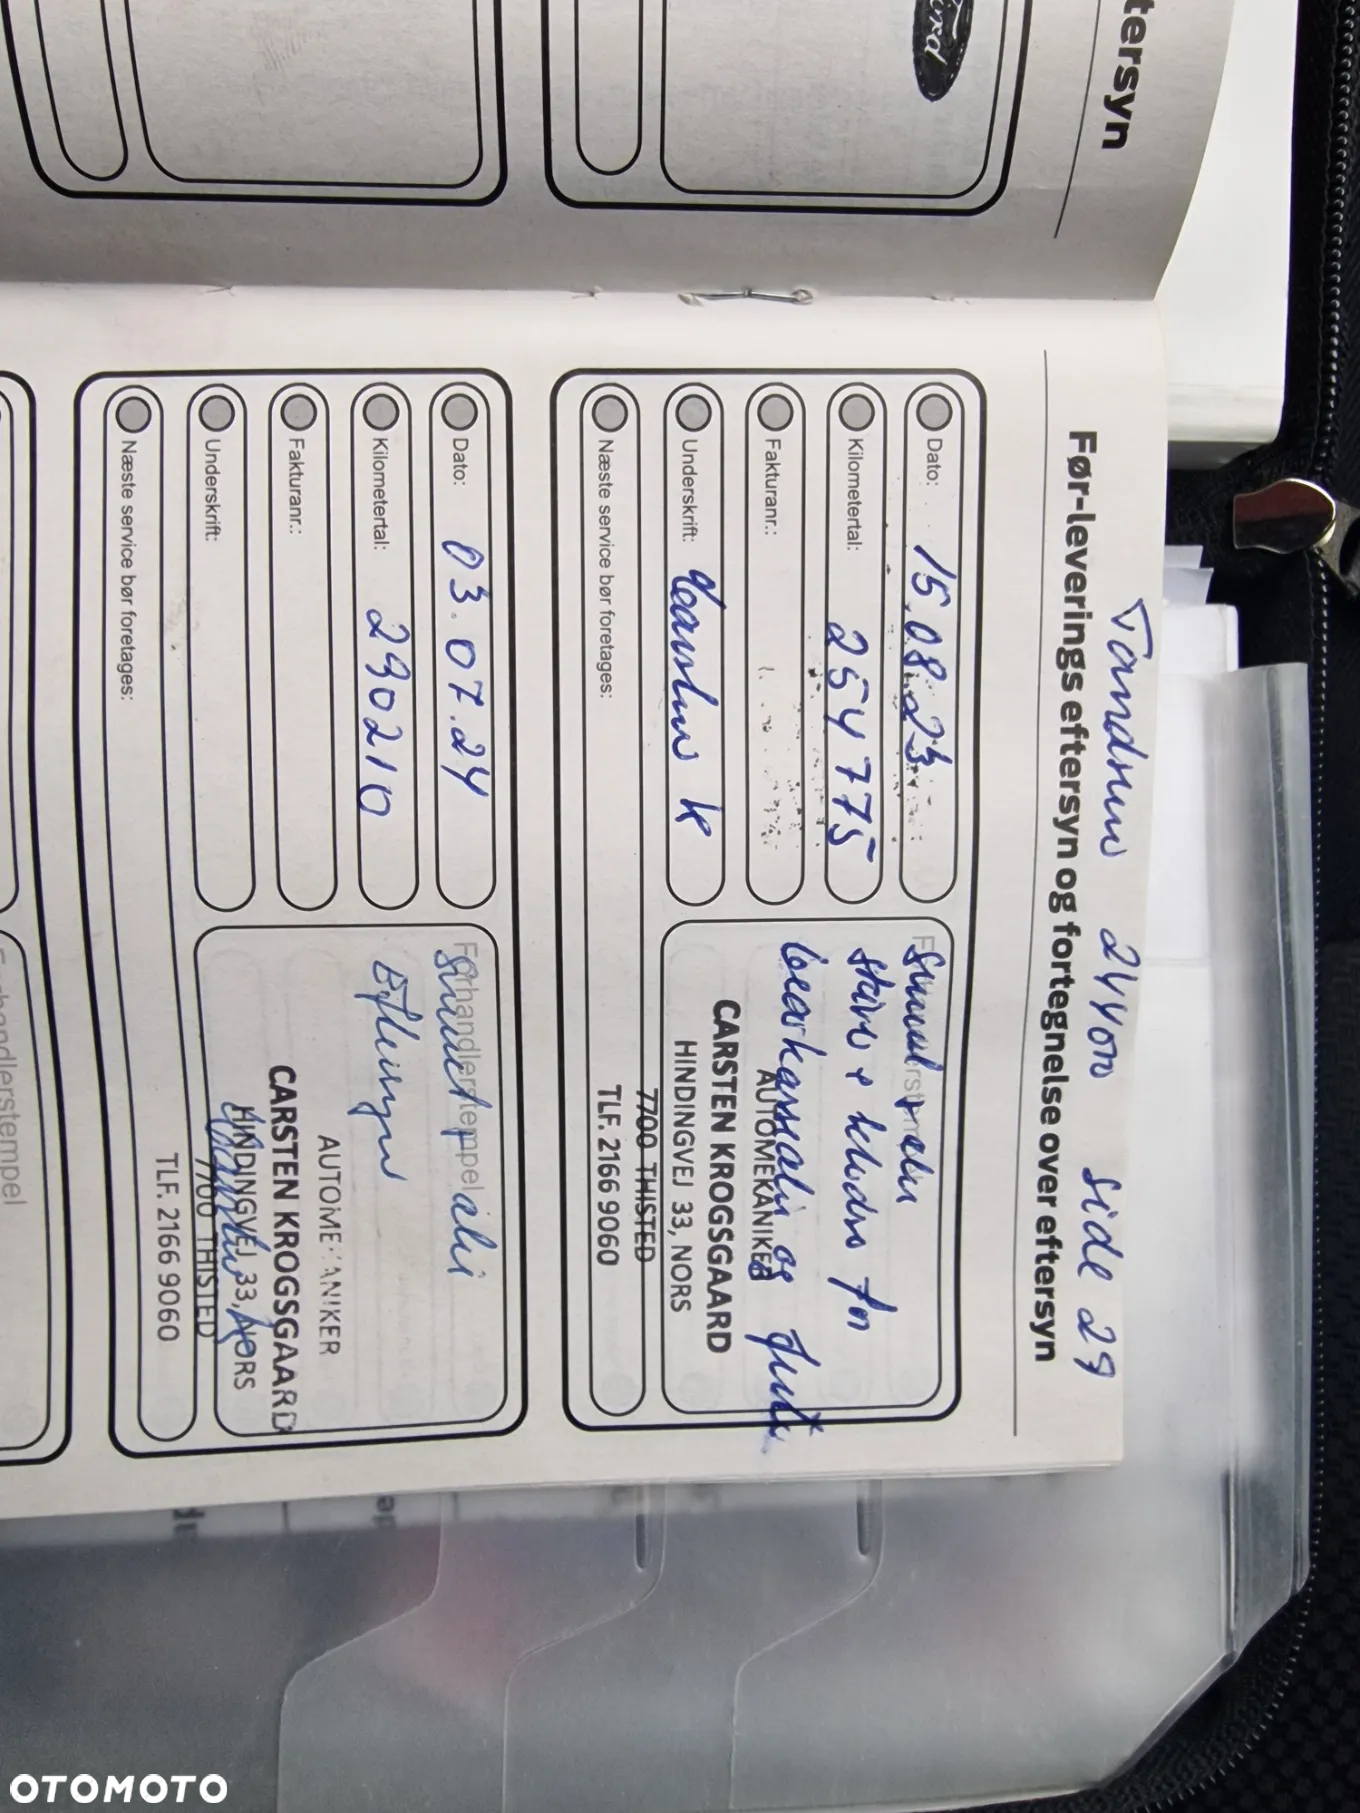 tersyn
Ford
Tandrem 244000 side 29
Før-leverings eftersyn og fortegnelse over eftersyn
Dato: 15.08.23
Kilometertal: 254775
Fakturanr.:
Underskrift: K
Næste service bør foretages:
skive + klodser for
og
AUTOMEKANIKER
CARSTEN KROGSGAARD
HINDINGVEJ 33, NORS
7700 THISTED
TLF. 2166 9060
Dato: 03.07.24
Kilometertal: 290210
Fakturanr.:
Underskrift:
Næste service bør foretages:
Forhandlerstempel
Eftersyn
AUTOMEKANIKER
CARSTEN KROGSGAARD
HINDINGVEJ 33, NORS
7700 THISTED
TLF. 2166 9060
handlerstempel
OTOMOTO